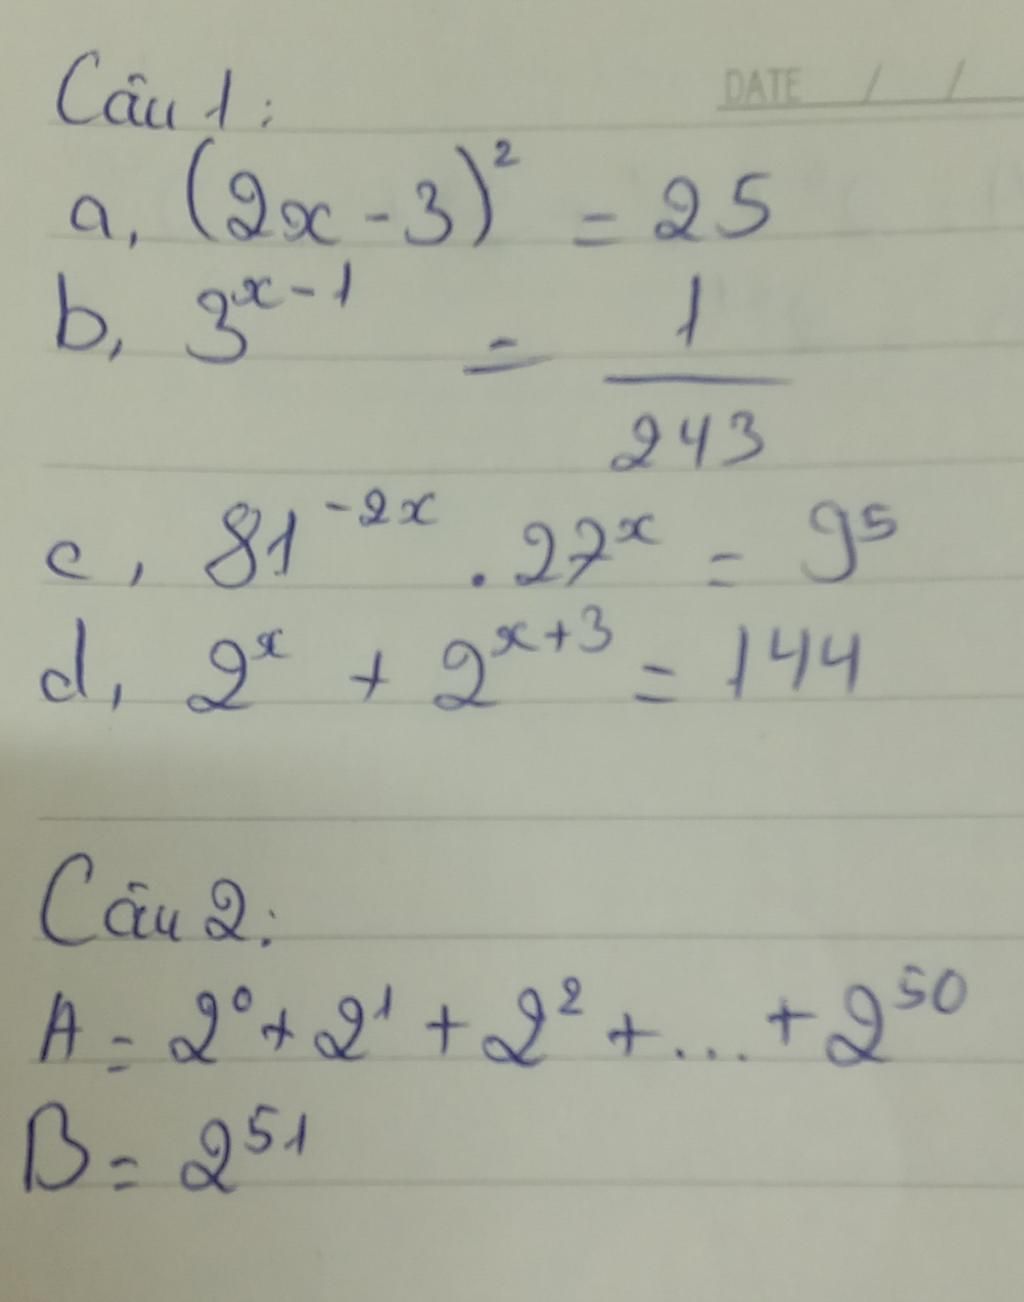 DATE / /
Câu 1:
a, (2x - 3)² = 25
b, 3^{x-1} = 1/243
c, 81^{-2x} . 27^x = 9⁵
d, 2^x + 2^{x+3} = 144
Câu 2:
A = 2⁰ + 2¹ + 2² + ... + 2⁵⁰
B = 2⁵¹